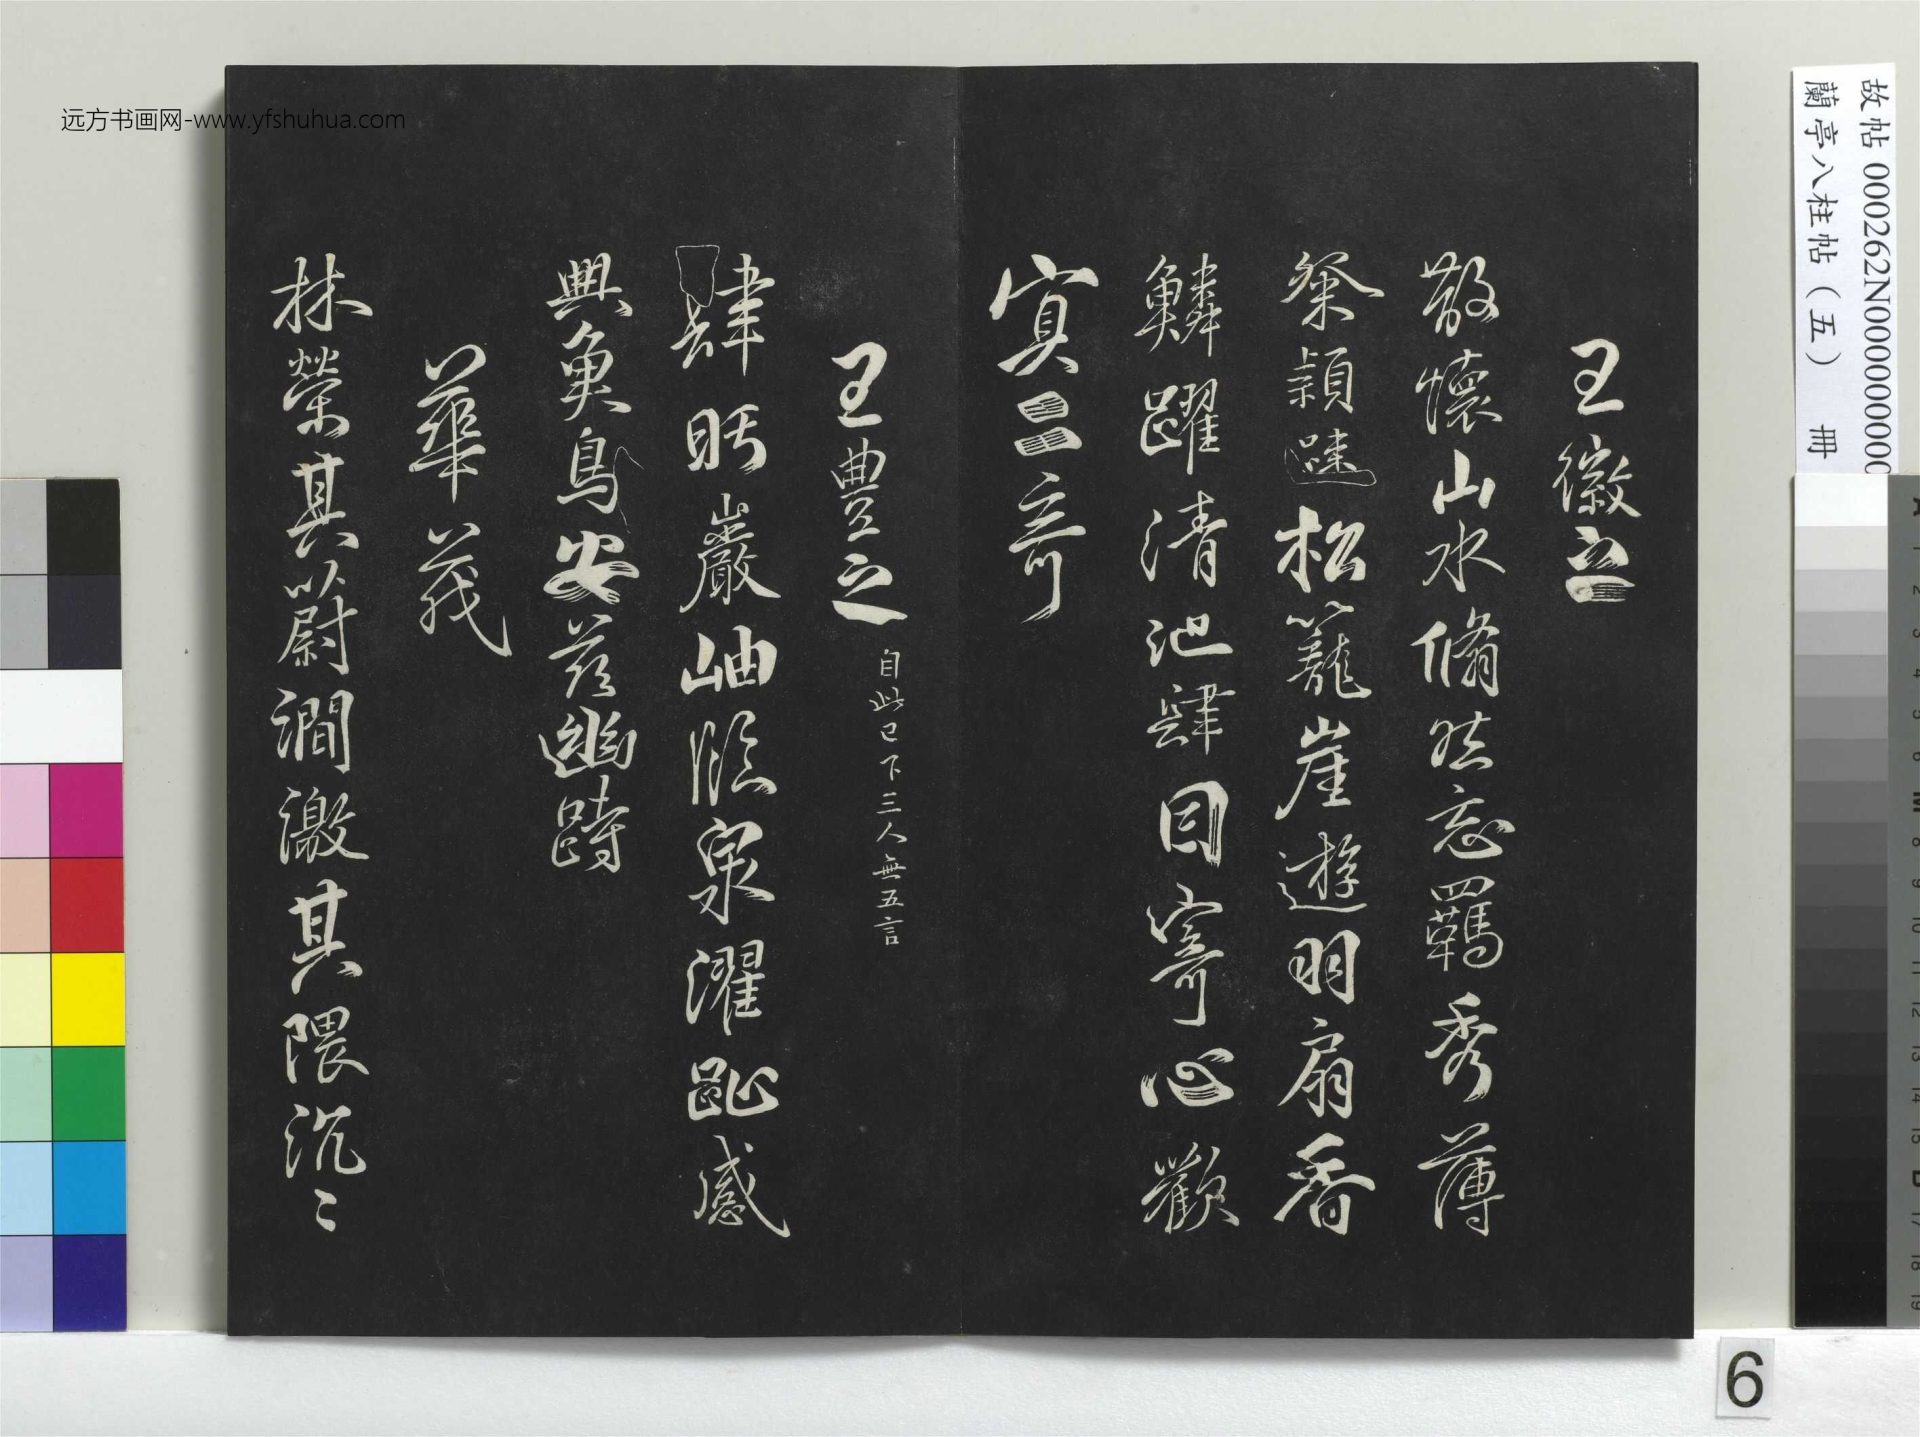 王徽之
散懷山水翛然忘羈秀薄
粲穎踈松籠崖遊羽扇霄
鱗躍清池肆目寄心歡
寘二奇
王豐之
自此已下三人無五言
肆眄巖岫臨泉濯趾感
興魚鳥安茲幽跱
華茂
林榮其蔚澗激其隈汎〻
远方书画网-www.yfshuhua.com
故帖 000262N000000000
蘭亭八柱帖（五） 冊
6